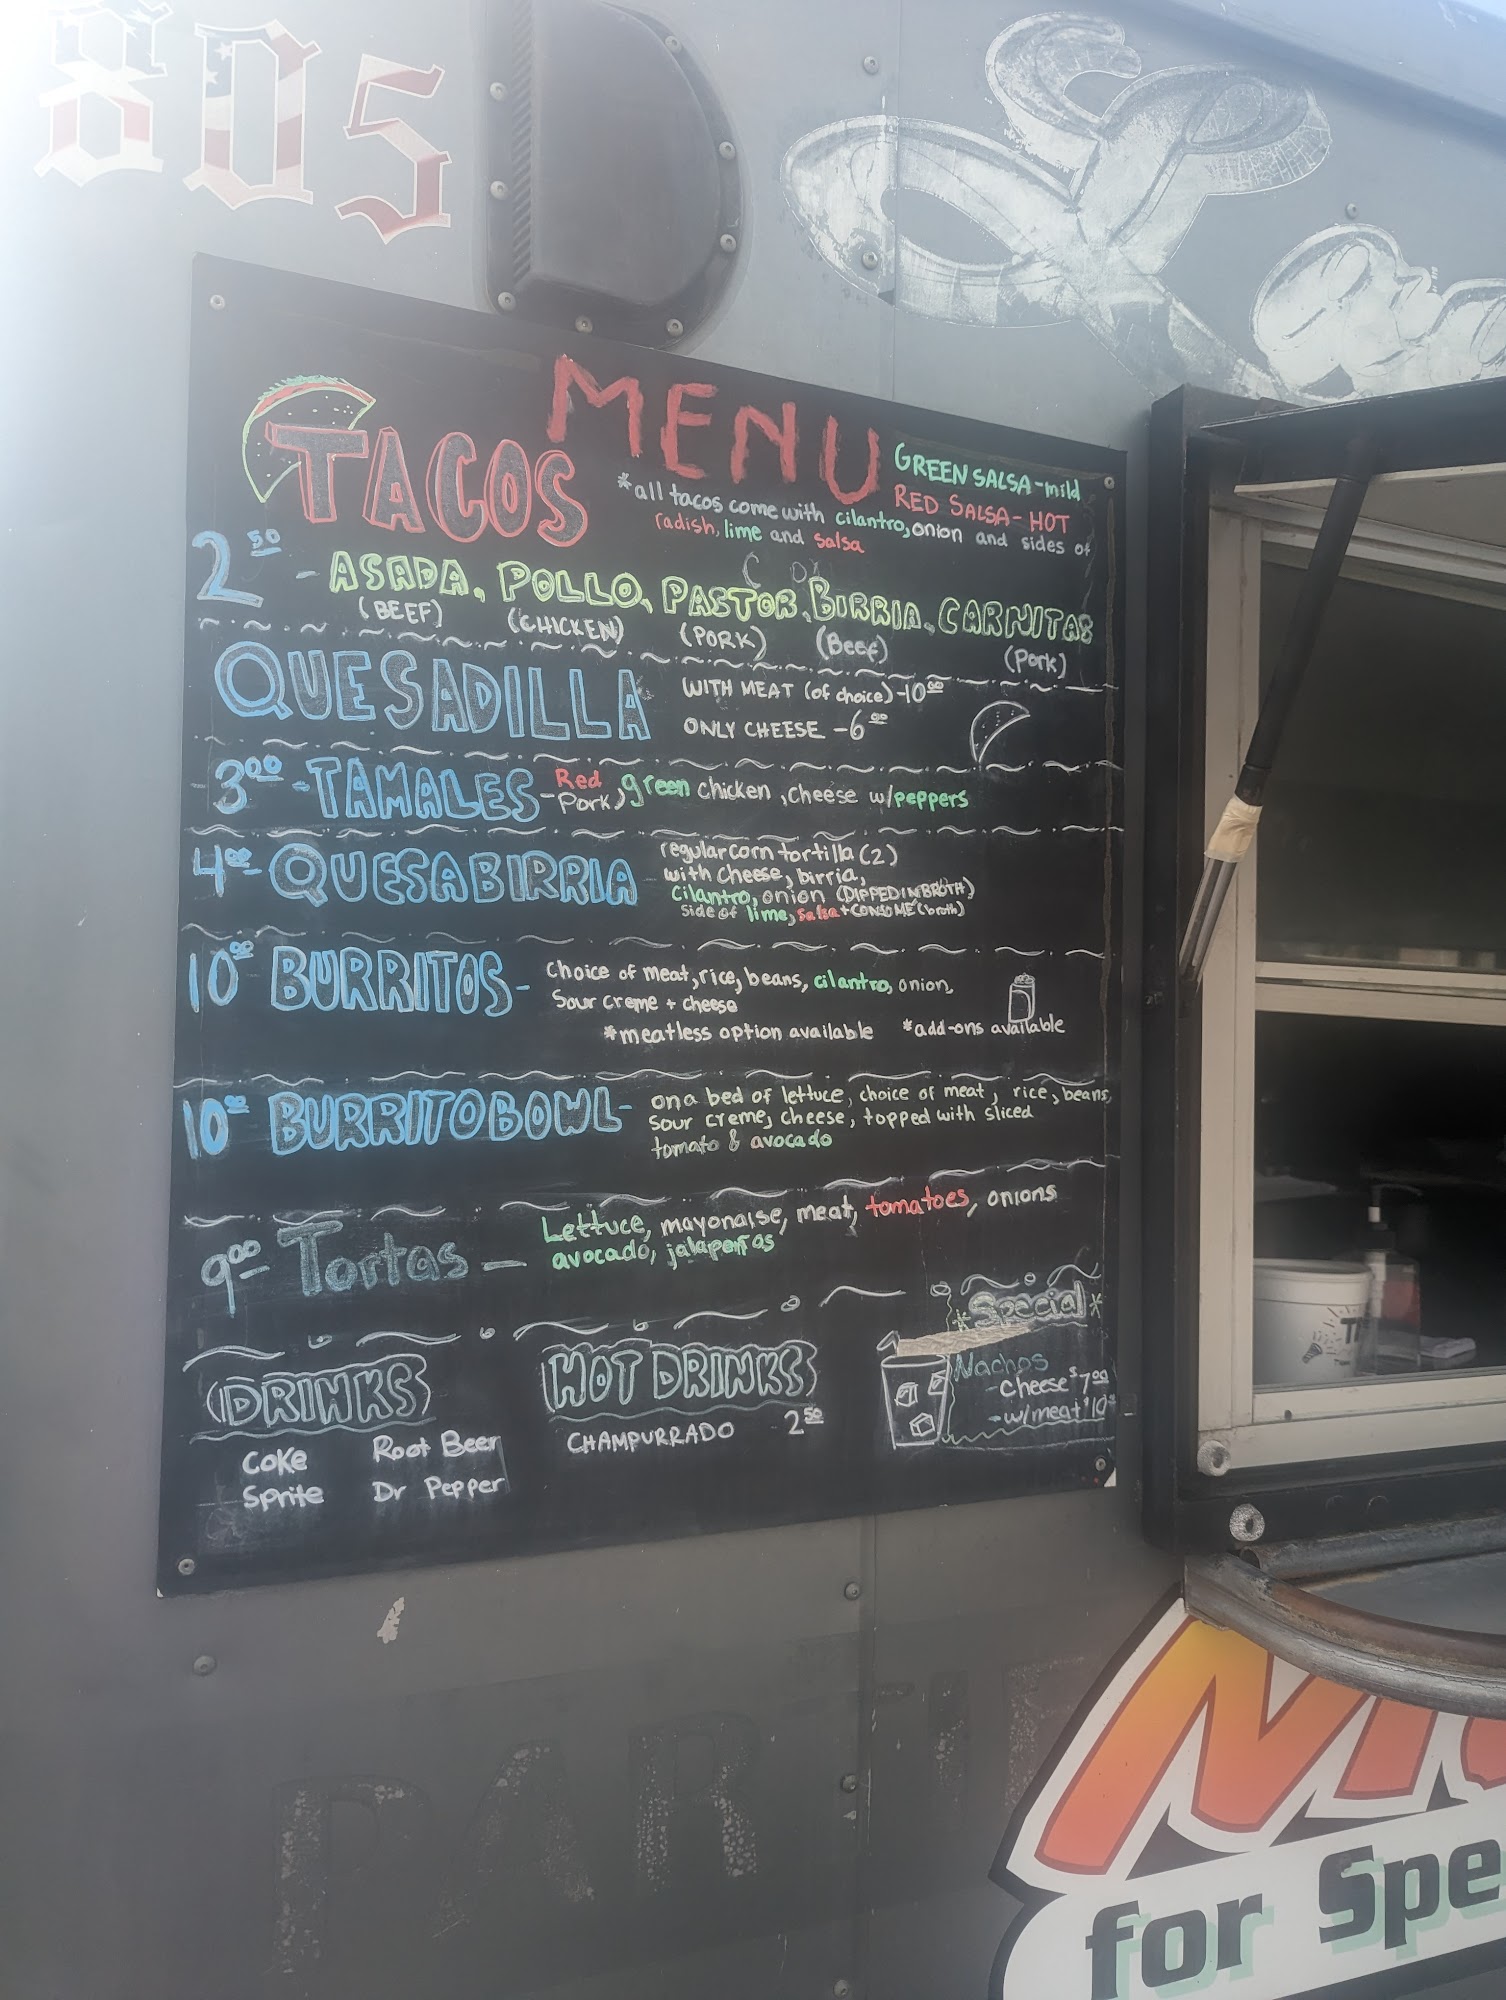 805
MENU
TACOS
GREEN SALSA-mild
RED SALSA-HOT
*all tacos come with cilantro, onion and sides of
radish, lime and salsa
2 50 - ASADA, POLLO, PASTOR, BIRRIA, CARNITAS
(BEEF) (CHICKEN) (PORK) (Beef) (Pork)
QUESADILLA
WITH MEAT (of choice) -10 00
ONLY CHEESE -6 00
3 00 - TAMALES - Red Pork, green chicken, cheese w/peppers
4 00 - QUESABIRRIA
regular corn tortilla (2)
with cheese, birria,
cilantro, onion (DIPPED IN BROTH)
side of lime, salsa + CONSOMÉ (broth)
10 00 BURRITOS - choice of meat, rice, beans, cilantro, onion,
Sour creme + cheese
*meatless option available *add-ons available
10 00 BURRITO BOWL - on a bed of lettuce, choice of meat, rice, beans,
sour creme, cheese, topped with sliced
tomato & avocado
9 00 Tortas - Lettuce, mayonaise, meat, tomatoes, onions
avocado, jalapeños
*Special*
Nachos
- Cheese $7 00
- w/meat $10
DRINKS
Coke Root Beer
Sprite Dr Pepper
HOT DRINKS
CHAMPURRADO 2 50
for Spe